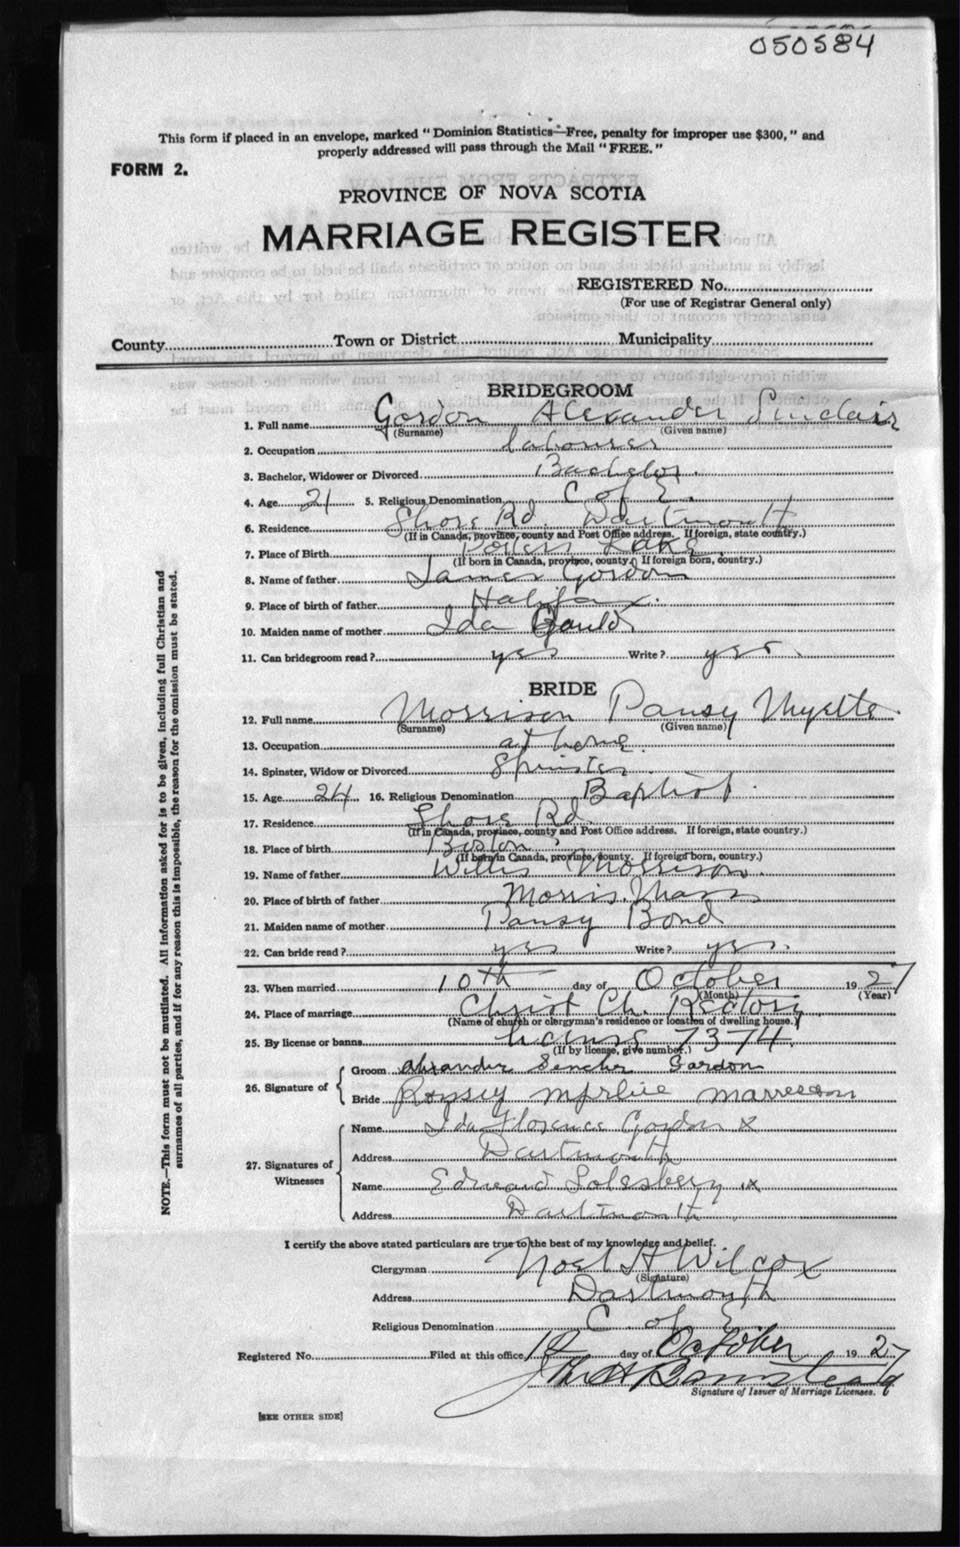 050584
This form if placed in an envelope, marked "Dominion Statistics—Free, penalty for improper use $300," and
properly addressed will pass through the Mail "FREE."
FORM 2.
PROVINCE OF NOVA SCOTIA
MARRIAGE REGISTER
REGISTERED No.
(For use of Registrar General only)
County Town or District Municipality
BRIDEGROOM
1. Full name Gordon Alexander Sinclair
(Surname) (Given name)
2. Occupation labourer
3. Bachelor, Widower or Divorced Bachelor
4. Age 21 5. Religious Denomination C of E.
6. Residence Shore Rd. Dartmouth
(If in Canada, province, county and Post Office address. If foreign, state country.)
7. Place of Birth Lake
(If born in Canada, province, county. If foreign born, country.)
8. Name of father James Gordon
9. Place of birth of father Halifax.
10. Maiden name of mother Ida Gauld
11. Can bridegroom read? yes Write? yes.
BRIDE
12. Full name Morrison Pansy Myrtle
(Surname) (Given name)
13. Occupation at home.
14. Spinster, Widow or Divorced Spinster
15. Age 24 16. Religious Denomination Baptist.
17. Residence Shore Rd.
(If in Canada, province, county and Post Office address. If foreign, state country.)
18. Place of birth Boston
(If born in Canada, province, county. If foreign born, country.)
19. Name of father Willis Morrison.
20. Place of birth of father Morris. Mass
21. Maiden name of mother Pansy Bond
22. Can bride read? yes Write? yes.
23. When married 10th day of October 1927
(Month) (Year)
24. Place of marriage Christ Ch. Rectory
(Name of church or clergyman's residence or location of dwelling house.)
25. By license or banns license 7374.
(If by license, give number.)
26. Signature of
Groom Alxander Sencler Gardon
Bride
27. Signatures of
Witnesses
Name Ida Florence Gordon x
Address Dartmouth
Name Edward Solesbery x
Address Dartmouth
I certify the above stated particulars are true to the best of my knowledge and belief.
Clergyman Noel H Wilcox
(Signature)
Address Dartmouth
Religious Denomination C of E
Registered No. Filed at this office day of October 1927
Signature of Issuer of Marriage Licenses.
[SEE OTHER SIDE]
NOTE.—This form must not be mutilated. All information asked for is to be given, including full Christian and
surnames of all parties, and if for any reason this is impossible, the reason for the omission must be stated.